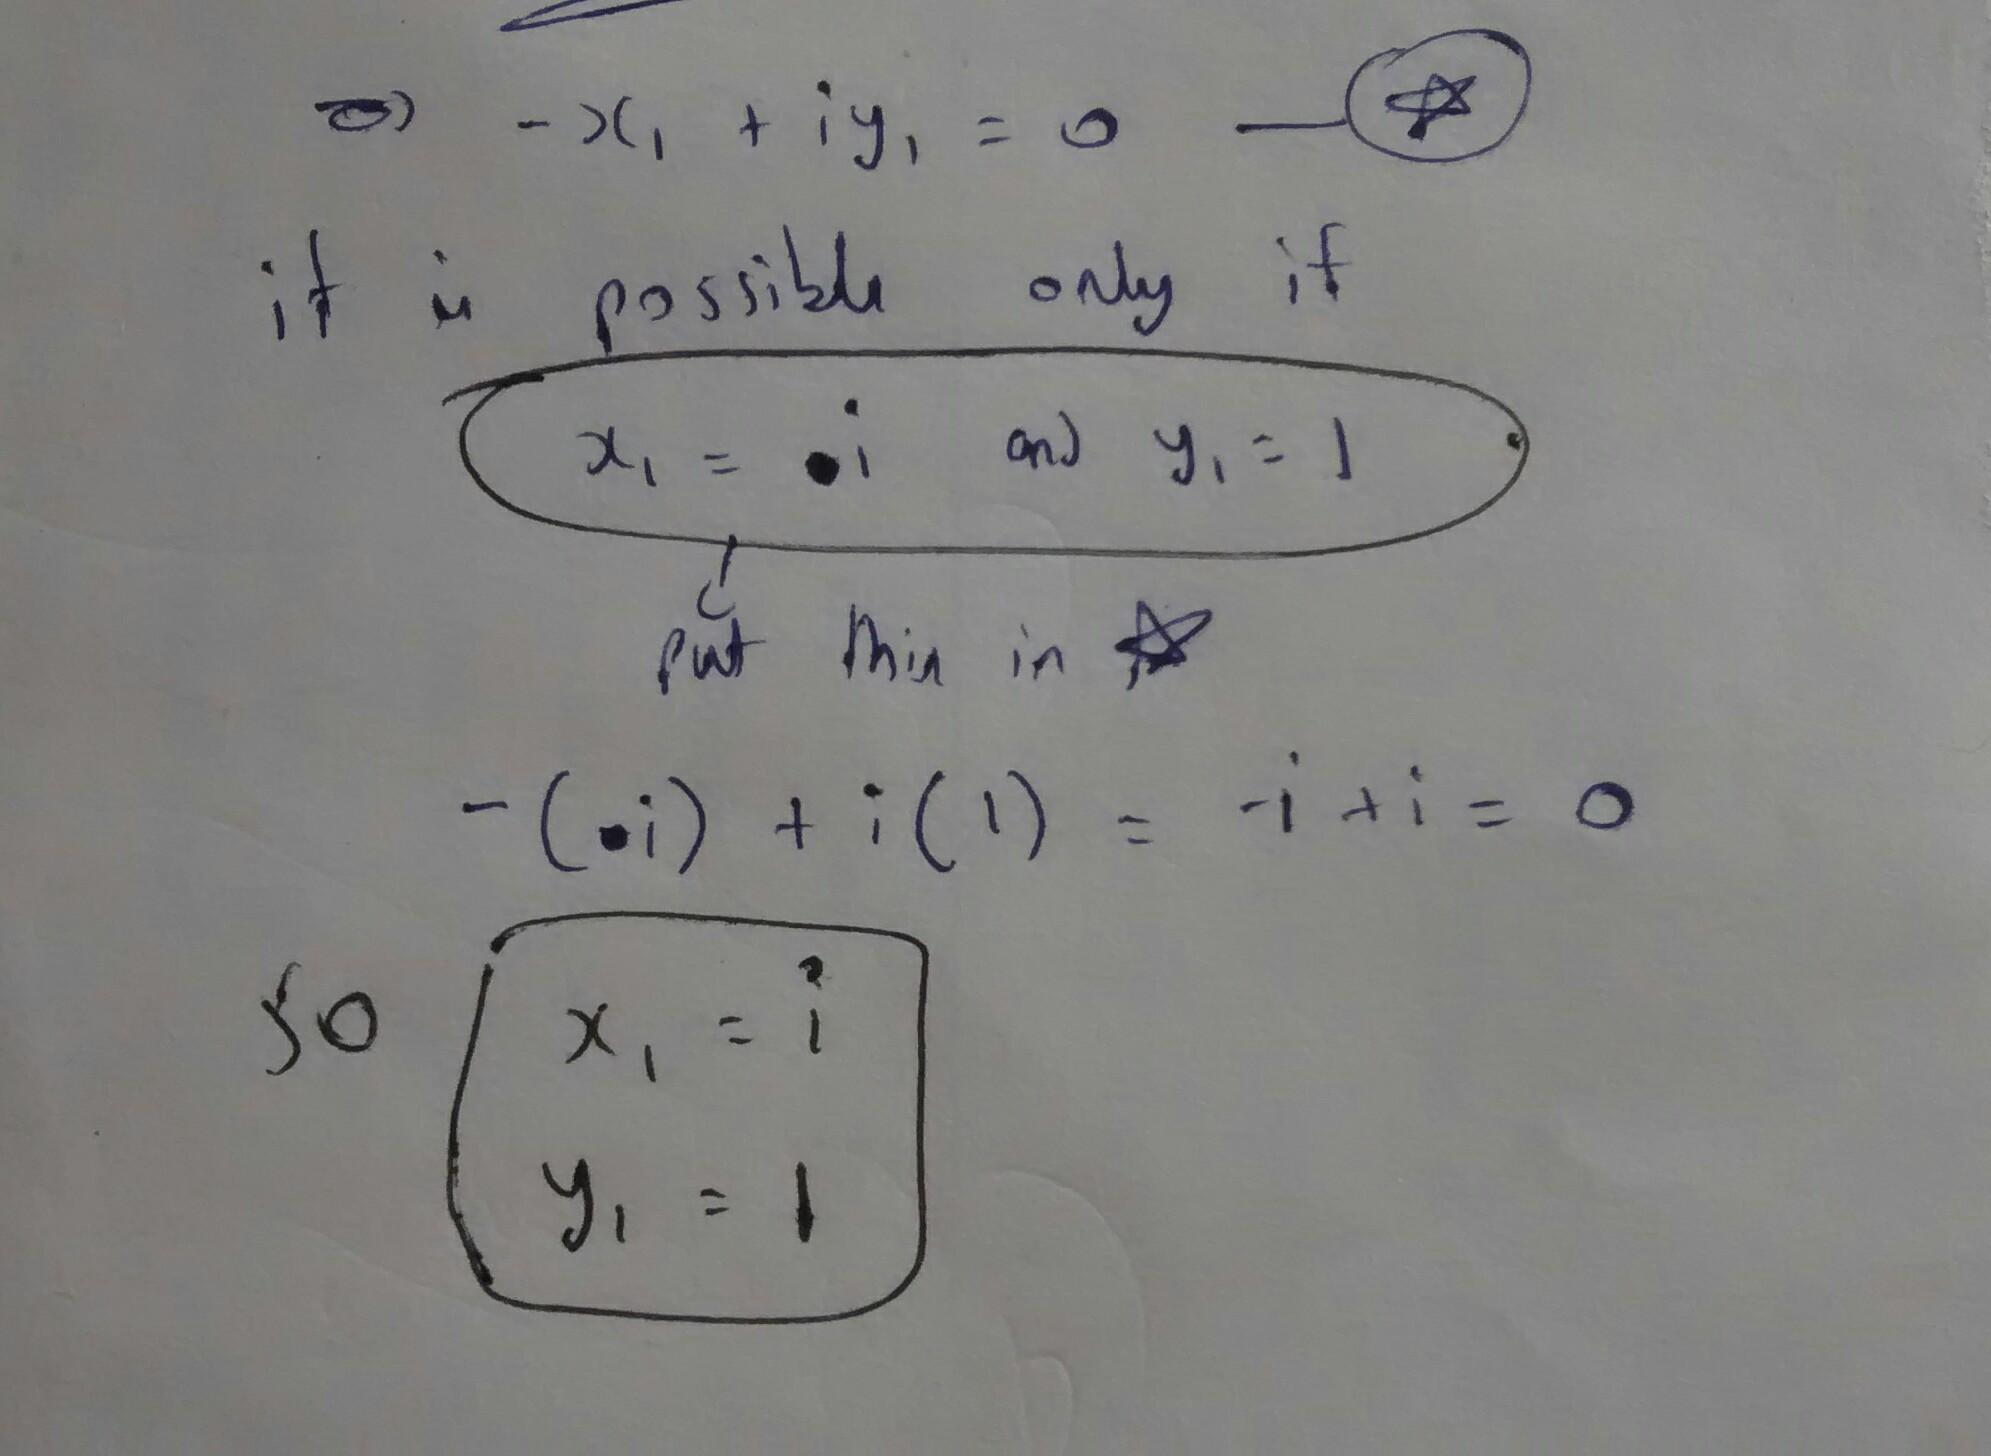 ⇒ -x₁ + iy₁ = 0 — ☆
it is possible only if
x₁ = i and y₁ = 1
put this in ☆
-(i) + i(1) = -i + i = 0
so
x₁ = i
y₁ = 1